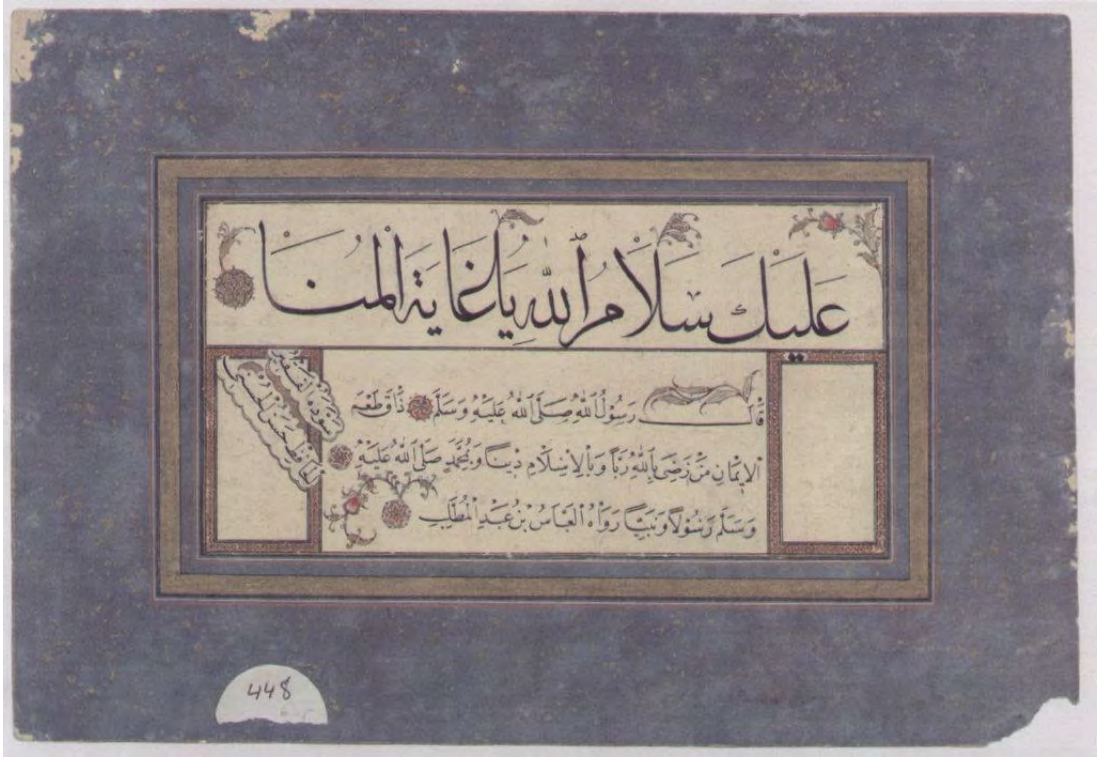 عَلَيْكَ سَلَامُ ٱللّٰهِ يَا غَايَةَ الْمُنَا
قَالَ رَسُولُ اللّٰهِ صَلَّى ٱللّٰهُ عَلَيْهِ وَسَلَّمَ ذَاقَ طَعْمَ
الْإِيْمَانِ مَنْ رَضِيَ بِاللّٰهِ رَبًّا وَبِالْإِسْلَامِ دِيْنًا وَبِمُحَمَّدٍ صَلَّى ٱللّٰهُ عَلَيْهِ
وَسَلَّمَ رَسُوْلًا وَنَبِيًّا رَوَاهُ الْعَبَّاسُ بْنُ عَبْدِ الْمُطَّلِبِ
سوده الفقير
حافظ حسن
448